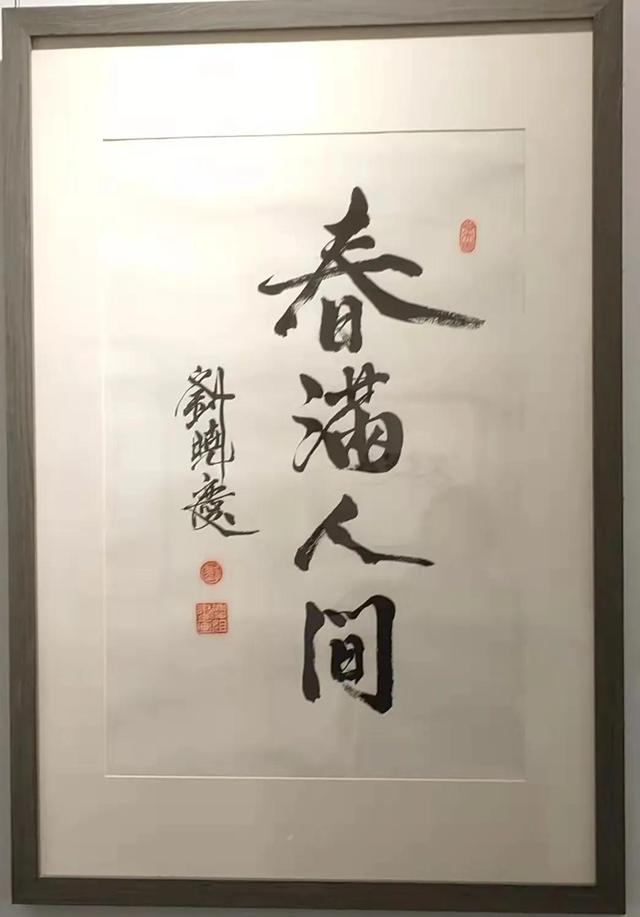 春满人间
劉曉慶